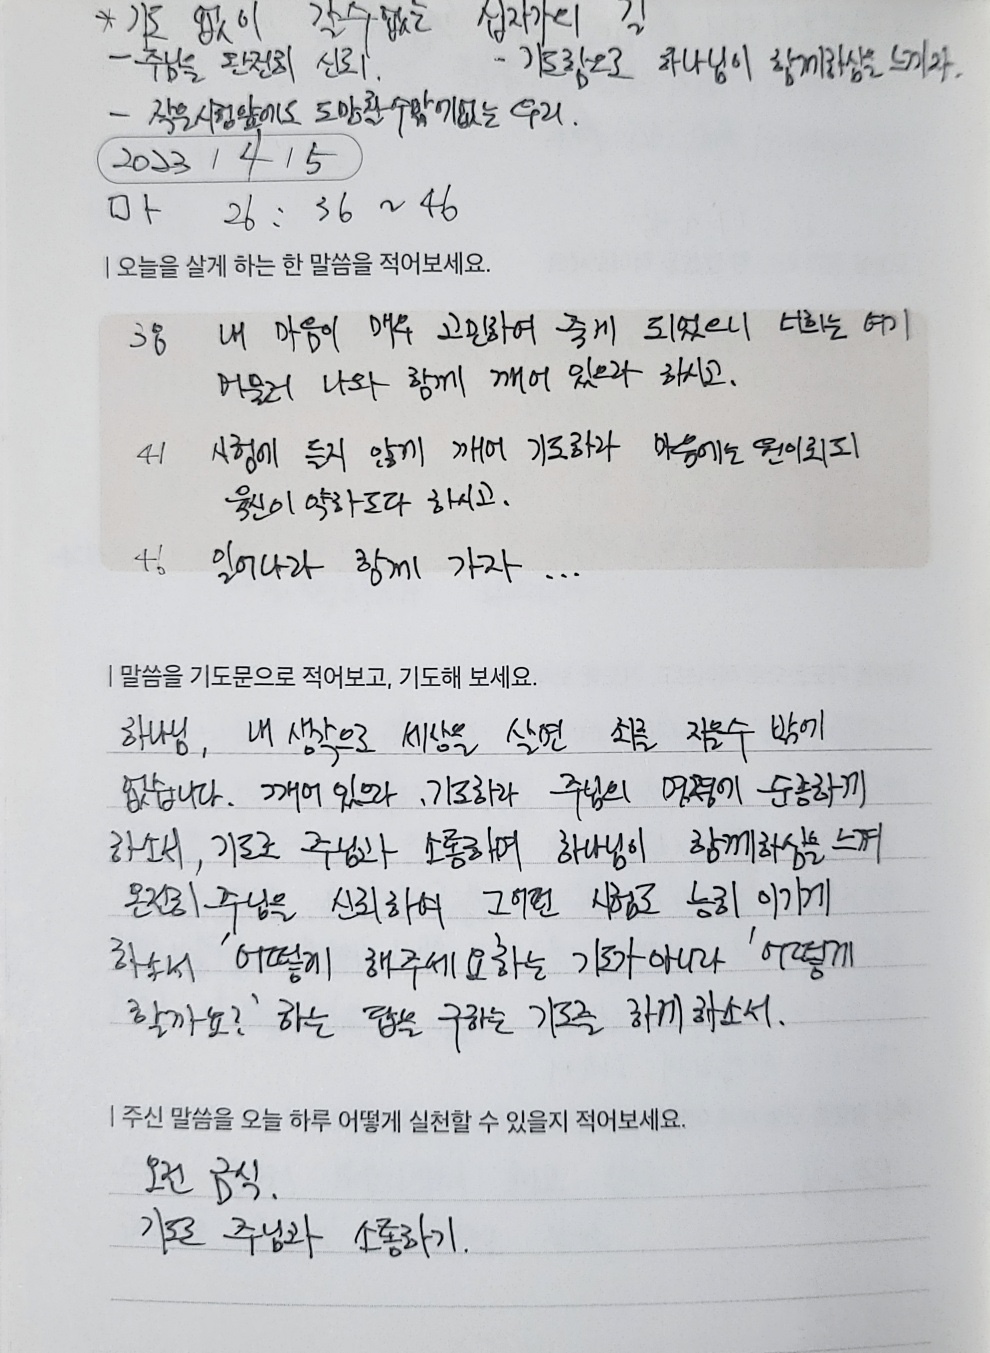 * 기도 없이 갈수없는 십자가의 길
- 주님을 온전히 신뢰. - 기도함으로 하나님이 함께하심을 느끼자.
- 작은시험앞에도 도망갈수밖에없는 우리.
2023 / 4 / 5
마 26 : 36 ~ 46
| 오늘을 살게 하는 한 말씀을 적어보세요.
38 내 마음이 매우 고민하여 죽게 되었으니 너희는 여기
머물러 나와 함께 깨어 있으라 하시고.
41 시험에 들지 않게 깨어 기도하라 마음에는 원이로되
육신이 약하도다 하시고.
46 일어나라 함께 가자 ...
| 말씀을 기도문으로 적어보고, 기도해 보세요.
하나님, 내 생각으로 세상을 살면 죄를 지을수 밖에
없습니다. 깨어 있으라, 기도하라 주님의 명령에 순종하게
하소서, 기도로 주님과 소통하며 하나님이 함께하심을 느껴
온전히 주님을 신뢰하여 그어떤 시험도 능히 이기게
하소서 '어떻게 해주세요하는 기도가 아니라 '어떻게
할까요?' 하는 답을 구하는 기도를 하게 하소서.
| 주신 말씀을 오늘 하루 어떻게 실천할 수 있을지 적어보세요.
오전 금식.
기도로 주님과 소통하기.